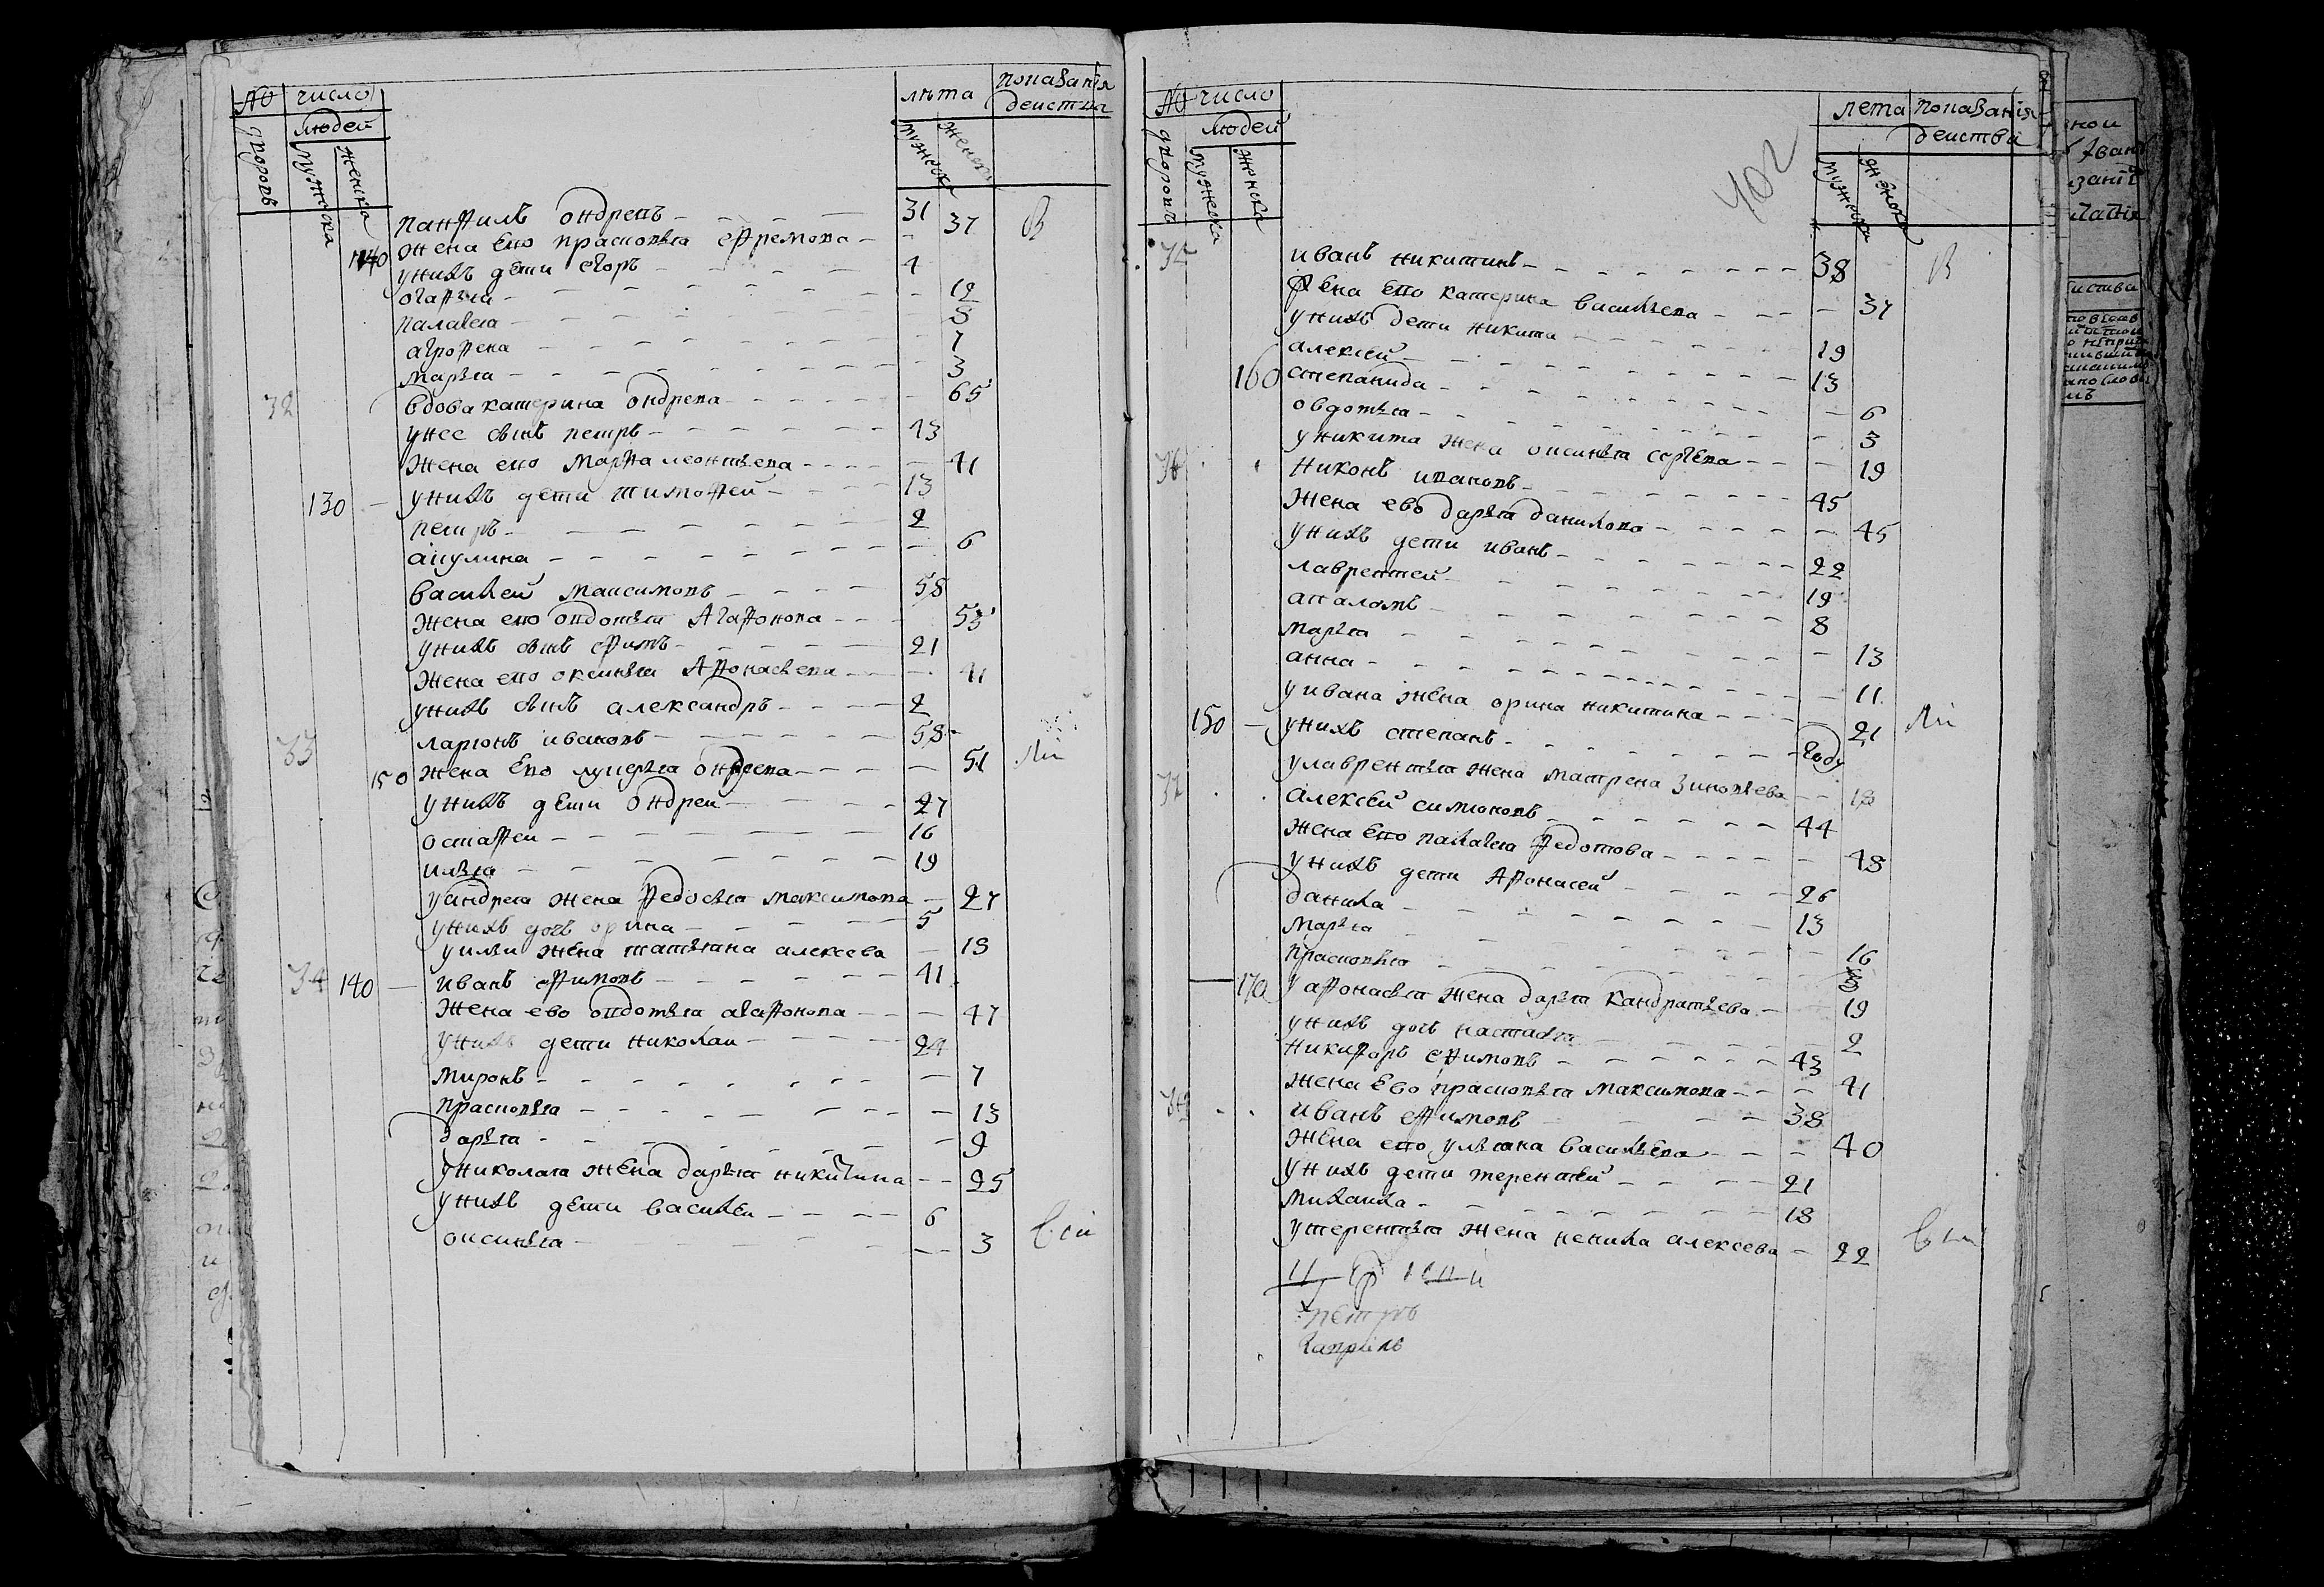 № число лѣта показанія
дворовъ людей деиства
мужеска женска мужеска женска
панфилъ ондревъ 31 В
жена ево прасковья ефремова 37
140 униxъ дети егоръ 4
огафья 12
палагея 8
агрофена 7
марья 3
32 вдова катерина ондрева 65
унее сынъ петръ 43
жена ево марфа леонтьева 41
130 унихъ дети тимофеи 13
петръ 2
акулина 6
василеи максимовъ 58
жена ево овдотья агафонова 53
унихъ сынъ ефимъ 21
жена ево оксинья афонасьева 41
унихъ сынъ александръ 2
33 ларионъ ивановъ 58
150 жена ево лукерья ондреева 51
унихъ дети ондреи 27
остафеи 16
илья 19
уандрея жена федосья максимова 27
унихъ дочь орина 5
уильи жена татьяна алексеева 19
34 140 иванъ ефимовъ 41
жена ево овдотья агафонова 47
унихъ дети николаи 24
миронъ 7
прасковья 13
дарья 9
униколая жена дарья никитина 25
унихъ дети василеи 6
оксинья 3
402
№ число лета показанія
дворовъ людеи деиства
мужеска женска мужеска женска
35 иванъ никитинъ 38 В
жена ево катерина васильева 37
унихъ дети никита 19
алексеи 13
160 степанида 6
овдотья 3
уникита жена оксинья сергева 19
36 никонъ ивановъ 45
жена ево дарья данилова 45
унихъ дети иванъ 22
лаврентеи 19
авдломъ 8
марья 13
анна 11
уивана жена орина никитина 21
150 унихъ степанъ году
улаврентья жена матрена зиновьева 18
37 алексеи симоновъ 44
жена ево палагея федотова 48
унихъ дети афонасеи 26
данила 13
марья 16
прасковья 8
170 уафонасья жена дарья кандратьева 19
унихъ дочь настасья 2
никифоръ ефимовъ 43
жена ево прасковья максимова 41
38 иванъ ефимовъ 38
жена ево ульяна васильева 40
унихъ дети терентеи 21
михаила 18
утерентья жена ненила алексеева 22
петръ
гаврилъ